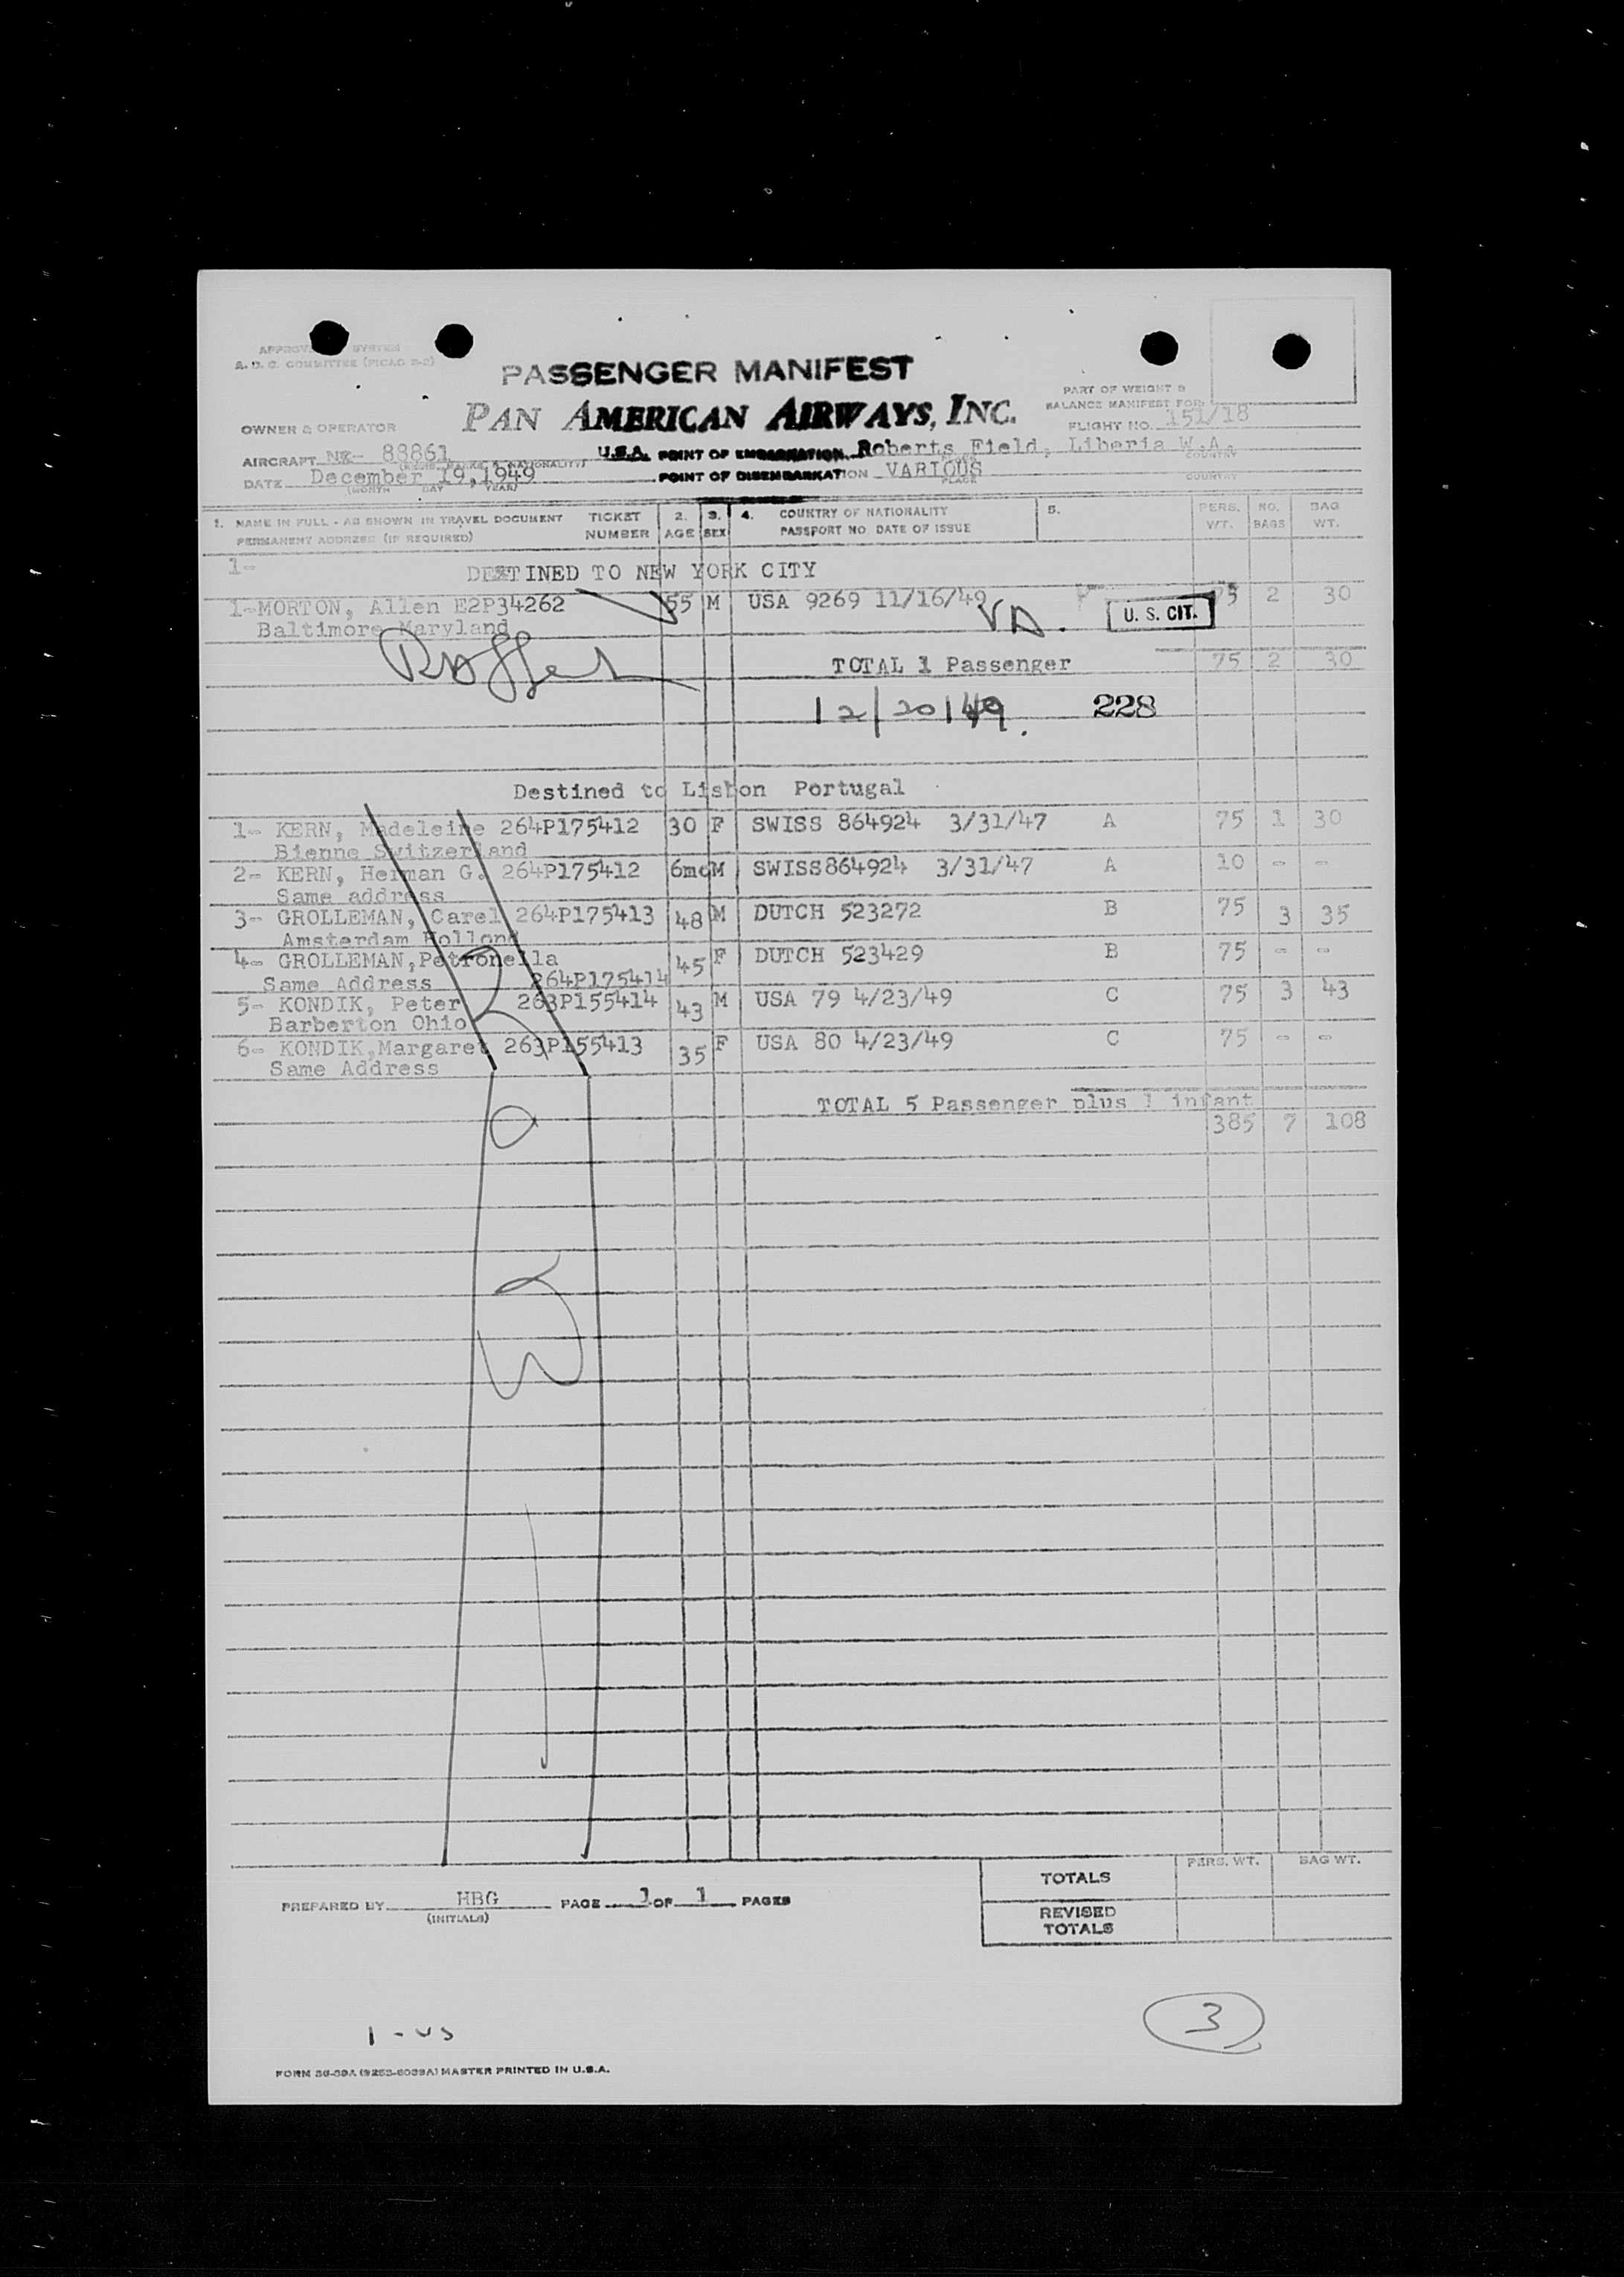 APPROV SYSTEM
A. D. C. COMMITTEE (PICAO 2-2)
PASSENGER MANIFEST
PAN AMERICAN AIRWAYS, INC.
PART OF WEIGHT &
BALANCE MANIFEST FOR:
FLIGHT NO. 151/18
OWNER & OPERATOR
AIRCRAFT 88861 U.S.A. POINT OF EMBARKATION Roberts Field, Liberia W.A.
DATE December 19,1949 POINT OF DISEMBARKATION VARIOUS
(MONTH DAY YEAR) PLACE COUNTRY
1. NAME IN FULL - AS SHOWN IN TRAVEL DOCUMENT TICKET 2. 3. 4. COUNTRY OF NATIONALITY 5. PERS. NO. BAG
PERMANENT ADDRESS (IF REQUIRED) NUMBER AGE SEX PASSPORT NO DATE OF ISSUE WT. BAGS WT.
1-
DESTINED TO NEW YORK CITY
1-MORTON, Allen E2P34262 55 M USA 9269 11/16/49 U. S. CIT. 75 2 30
Baltimore Maryland
TOTAL 1 Passenger 75 2 30
12/20/49. 228
Destined to Lisbon Portugal
1- KERN, Madeleine 264P175412 30 F SWISS 864924 3/31/47 A 75 1 30
Bienne Switzerland
2- KERN, Herman G. 264P175412 6mo M SWISS864924 3/31/47 A 10 - -
Same address
3- GROLLEMAN, Carel 264P175413 48 M DUTCH 523272 B 75 3 35
Amsterdam Holland
4- GROLLEMAN,Petronella 45 F DUTCH 523429 B 75 - -
Same Address 264P175414
5- KONDIK, Peter 263P155414 43 M USA 79 4/23/49 C 75 3 43
Barberton Ohio
6- KONDIK,Margaret 263P155413 35 F USA 80 4/23/49 C 75 - -
Same Address
TOTAL 5 Passenger plus 1 infant
385 7 108
PERS. WT. BAG WT.
TOTALS
PREPARED BY HBG PAGE 1 OF 1 PAGES
(INITIALS)
REVISED
TOTALS
3
1 - US
FORM 36-39A (9253-6039A) MASTER PRINTED IN U.S.A.